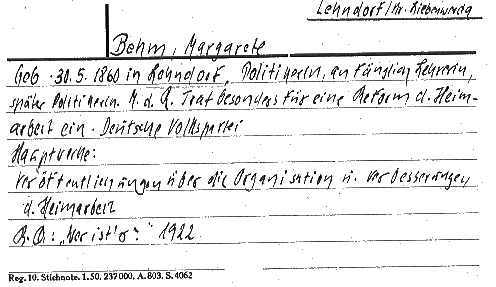 Lehndorf/Kr. Liebenwerda
Behm, Margarete
Geb. 30.5.1860 in Lehndorf, Politikerin, anfänglich Lehrerin,
später Politikerin. M.d.R. Trat besonders für eine Reform d. Heim-
arbeit ein. Deutsche Volkspartei
Hauptwerke:
Veröffentlichungen über die Organisation u. Verbesserungen
d. Heimarbeit
B.Q.: „Wer ist's?" 1922.
Reg. 10. Stichnote. 1. 50. 237000. A. 803. S. 4062